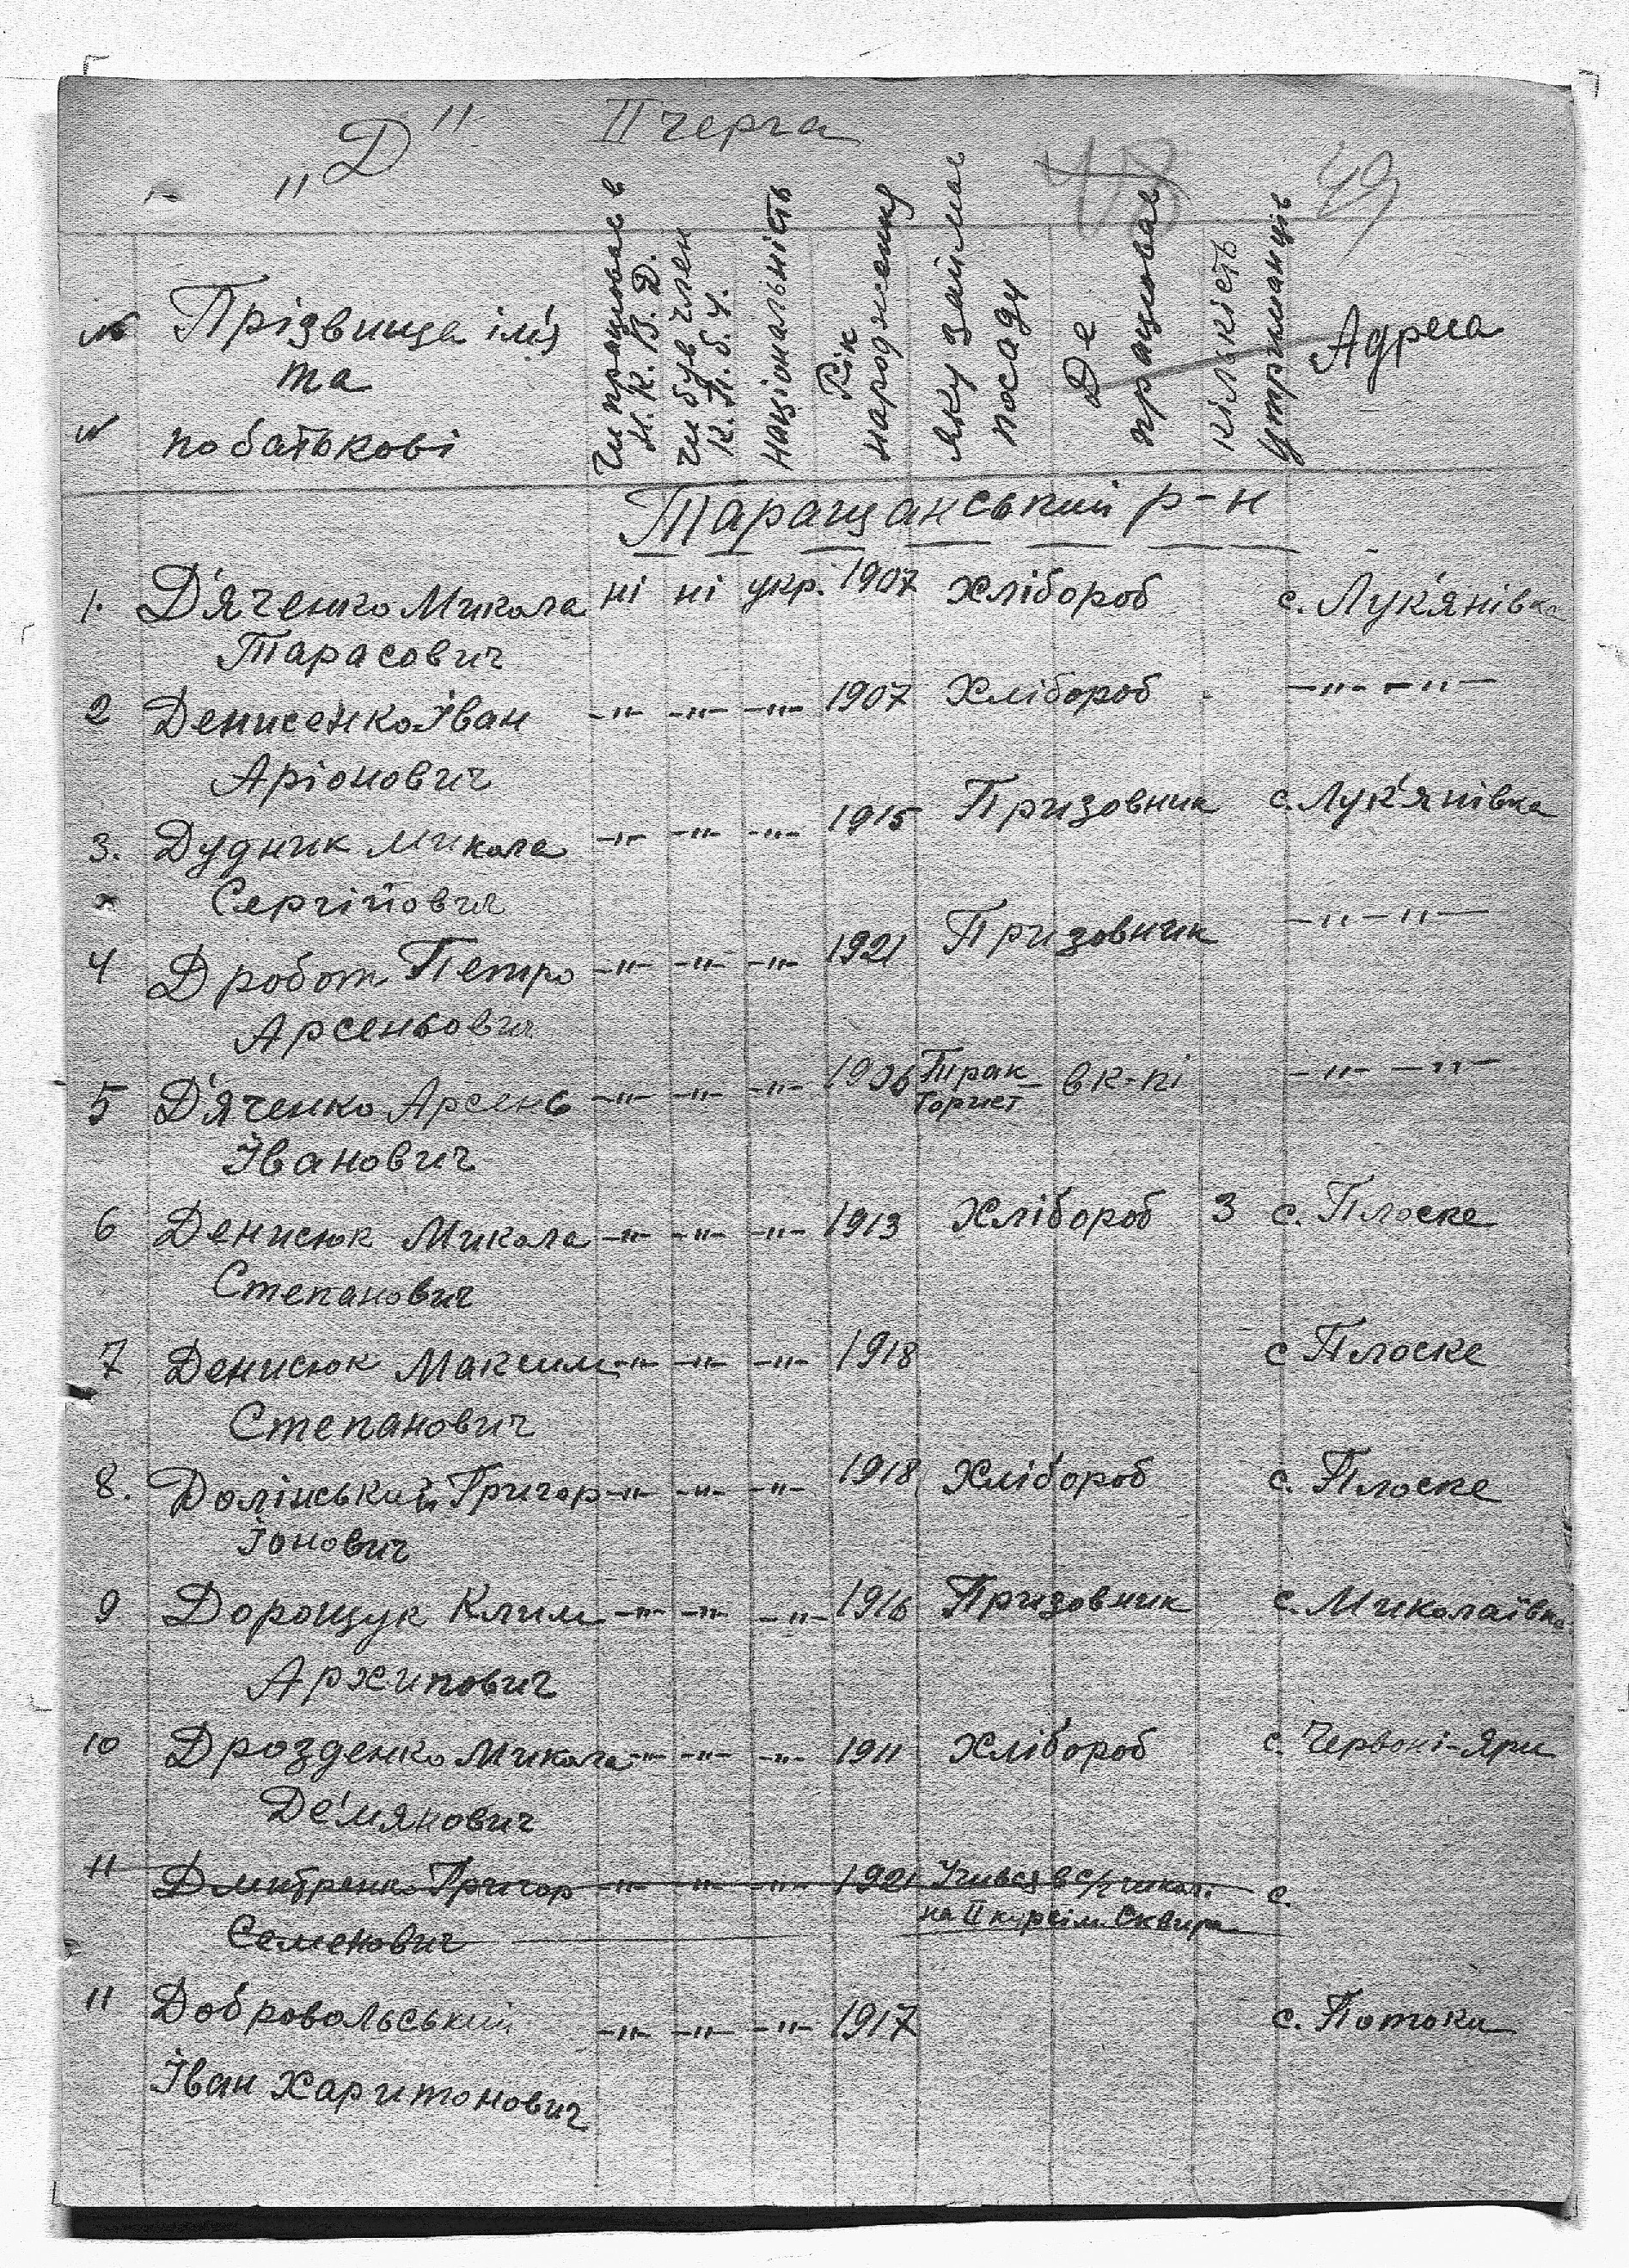 „Д" II черга
48 49
№ Прізвище ім'я
та
№ по батькові
Чи працював в
Н. К. В. Д.
чи був член
К. П. б. У.
національність
Рік
народження
яку займає
посаду
Де
працював
кількість
утриманців
Адреса
Таращанський р-н
1. Д'яченко Микола ні ні укр. 1907 Хлібороб с. Лук'янівка
Тарасович
2 Денисенко Іван -"- -"- -"- 1907 Хлібороб -"- -"-
Аріонович
3. Дудник Микола -"- -"- -"- 1915 Призовник с. Лук'янівка
Сергійович
4 Дробот Петро -"- -"- -"- 1921 Призовник -"-"-
Арсеньович
5 Д'яченко Арсень -"- -"- -"- 1906 Трак-
торист в к-пі -"- -"-
Іванович
6 Денисюк Микола -"- -"- -"- 1913 Хлібороб 3 с. Плоске
Степанович
7 Денисюк Максим -"- -"- -"- 1918 с Плоске
Степанович
8. Долінський Григор -"- -"- -"- 1918 Хлібороб с. Плоске
Іонович
9 Дорощук Клим -"- -"- -"- 1916 Призовник с. Миколаївка
Архипович
10 Дрозденко Микола -"- -"- -"- 1911 Хлібороб с. Червоні-Яри
Дем'янович
11 Дмитренко Григор -"- -"- -"- 1921 Учився в с/г школ. с.
на II курсі м. Сквира
Семенович
11 Добровольський -"- -"- -"- 1917 с. Потоки
Іван Харитонович